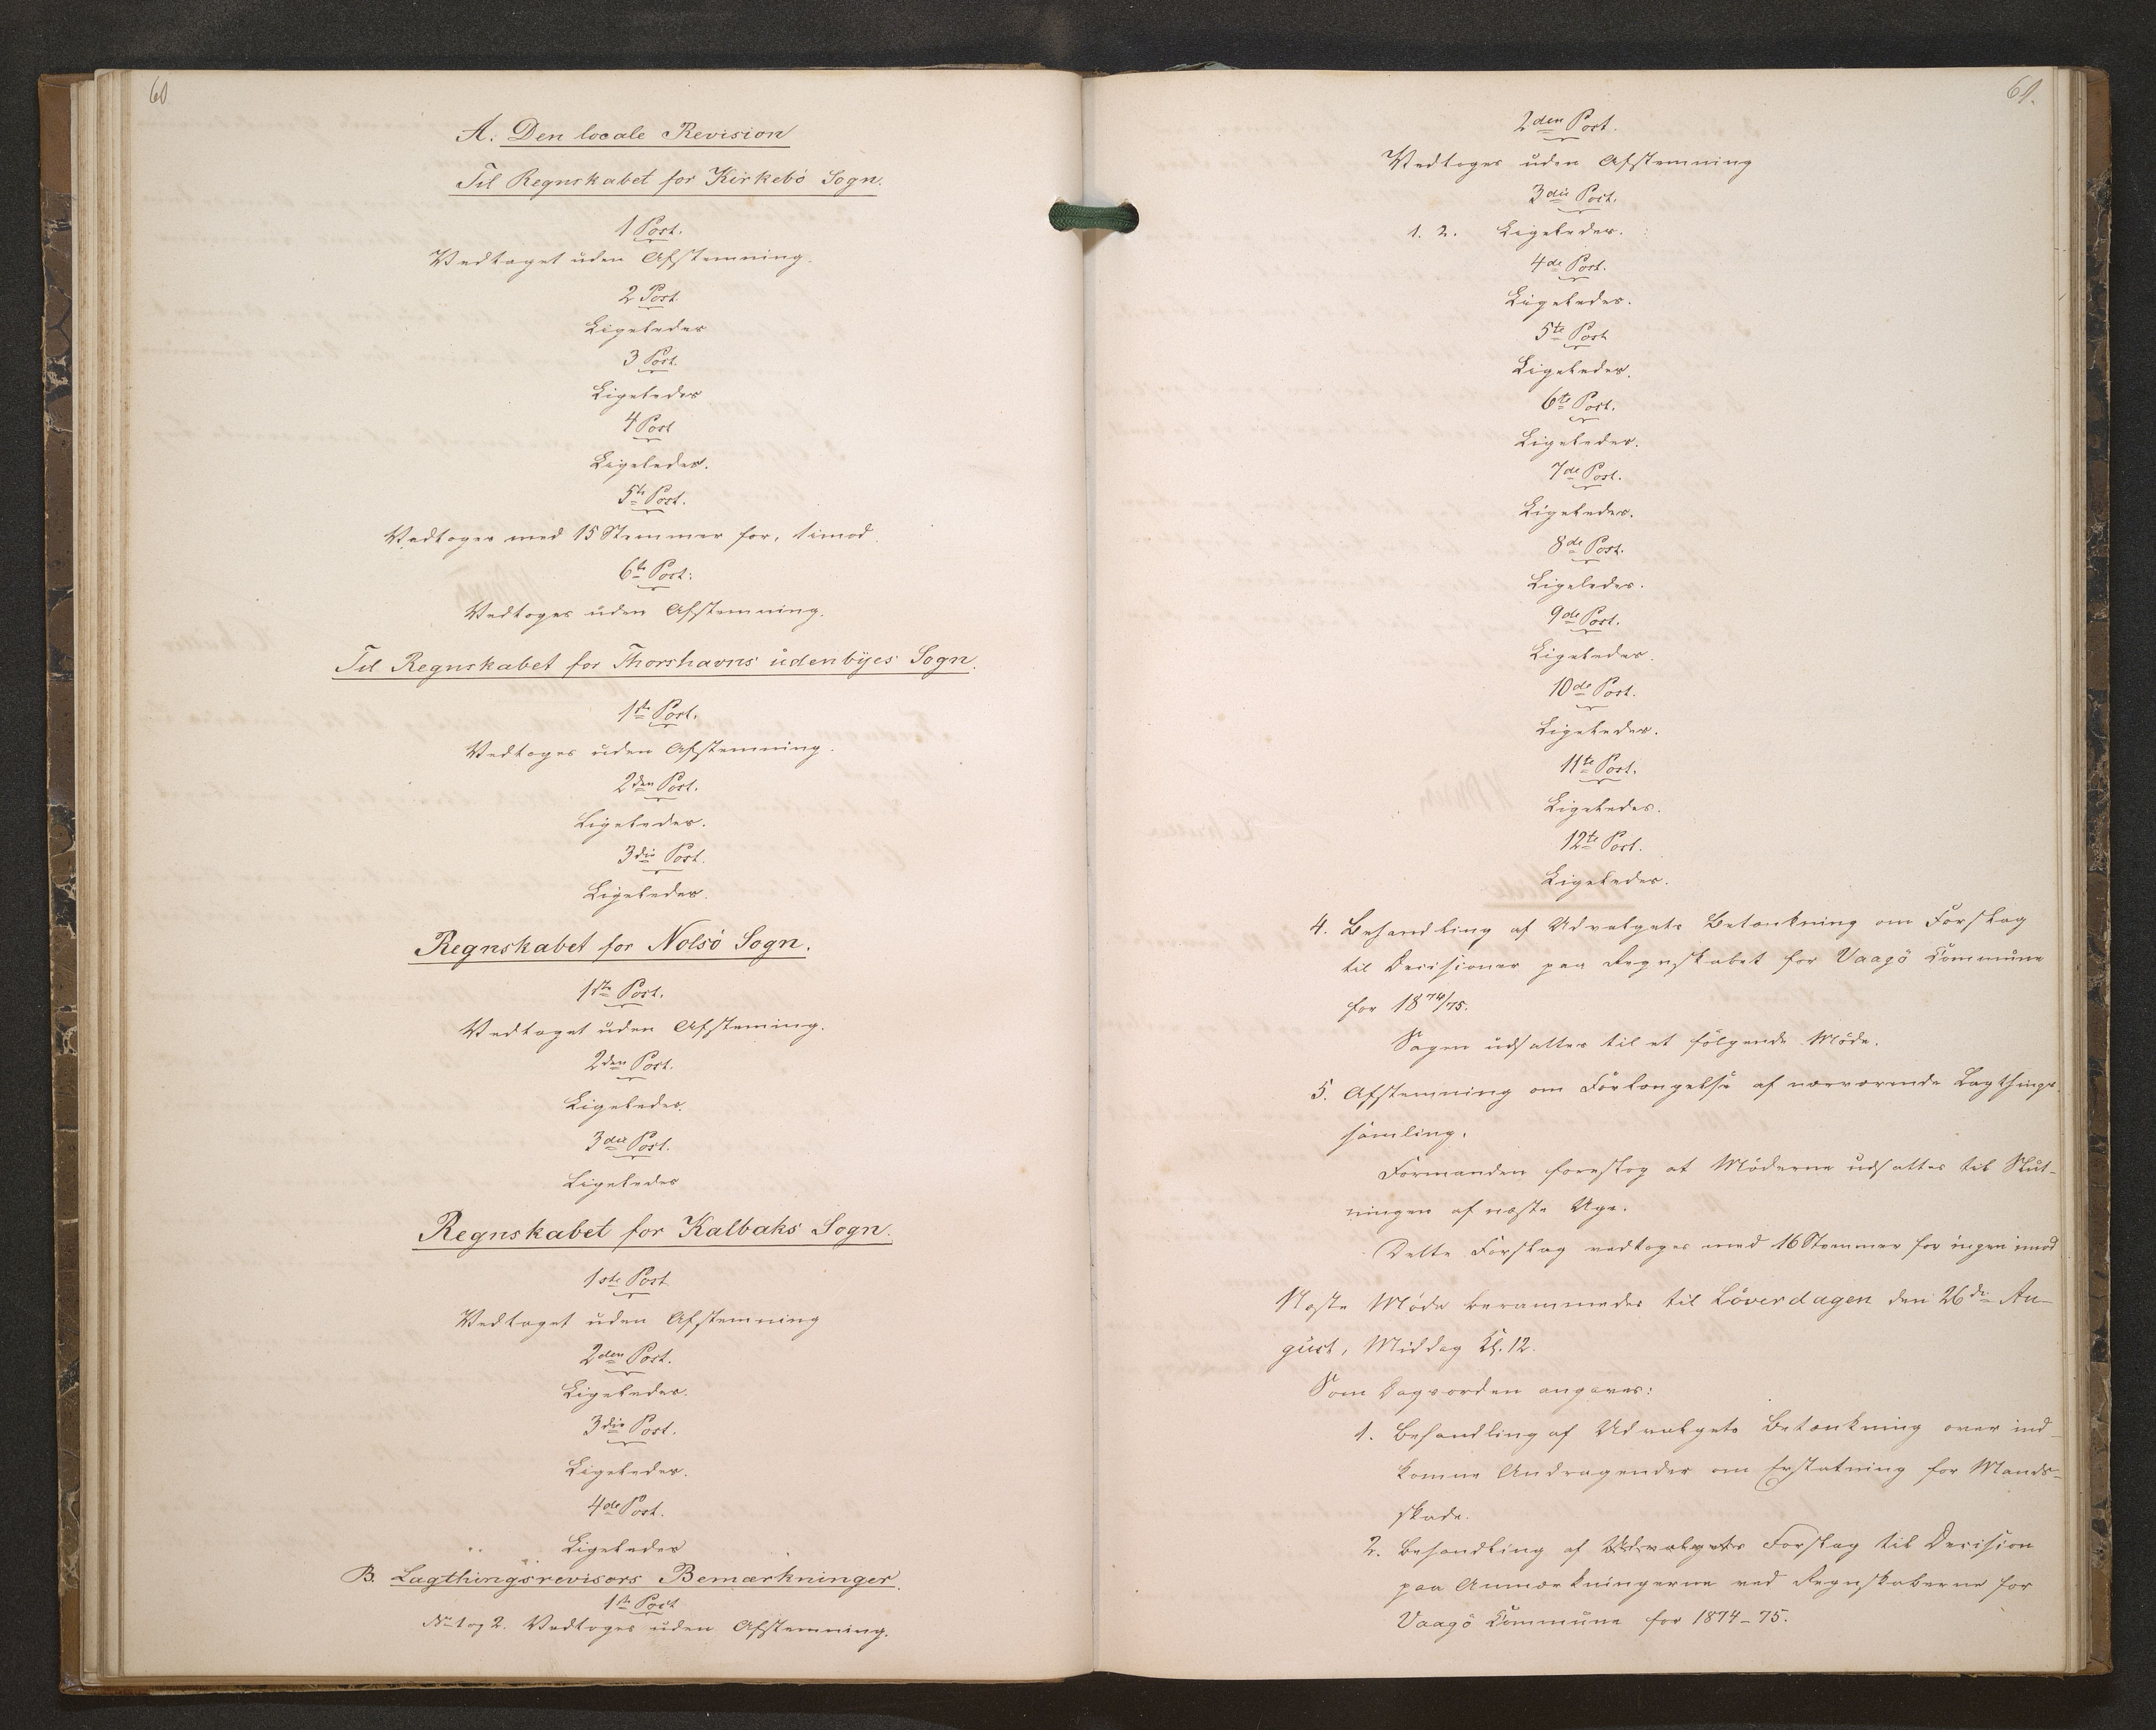 60
A. Den locale Revision
Til Regnskabet for Kirkebö Sogn.
1 Post.
Vedtaget uden Afstemning.
2 Post
Ligeledes
3 Post.
Ligeledes
4 Post
Ligeledes.
5te Post.
Vedtoges med 15 Stemmer for, 1 imod.
6te Post.
Vedtoges uden Afstemning.
Til Regnskabet for Thorshavns udenbyes Sogn.
1ste Post.
Vedtoges uden Afstemning.
2den Post.
Ligeledes.
3die Post.
Ligeledes.
Regnskabet for Nolsö Sogn.
1ste Post.
Vedtaget uden Afstemning.
2den Post.
Ligeledes.
3die Post.
Ligeledes
Regnskabet for Kalbaks Sogn.
1ste Post.
Vedtaget uden Afstemning
2den Post.
Ligeledes.
3die Post.
Ligeledes.
4de Post.
Ligeledes
B. Lagthingsrevisors Bemærkninger.
1ste Post
No 1 og 2. Vedtoges uden Afstemning.
61.
2den Post.
Vedtoges uden Afstemning
3die Post.
1. 2. Ligeledes.
4de Post.
Ligeledes.
5te Post
Ligeledes.
6te Post.
Ligeledes.
7de Post.
Ligeledes.
8de Post.
Ligeledes.
9de Post.
Ligeledes.
10de Post.
Ligeledes.
11te Post.
Ligeledes.
12te Post.
Ligeledes.
4. Behandling af Udvalgets Betænkning om Forslag
til Decisioner paa Regnskabet for Vaagö Kommune
for 1874/75.
Sagen udsattes til et fölgende Möde.
5. Afstemning om Forlængelse af nærværende Lagthings-
samling.
Formanden foreslog at Möderne udsattes til Slut-
ningen af næste Uge.
Dette Forslag vedtoges med 16 Stemmer for ingen imod
Næste Möde berammedes til Löverdagen den 26de Au-
gust, Middag Kl. 12.
Som Dagsorden angaves:
1. Behandling af Udvalgets Betænkning over ind-
komne Andragender om Erstatning for Mands-
skade.
2. Behandling af Udvalgets Forslag til Decision
paa Anmærkningerne ved Regnskaberne for
Vaagö Kommune for 1874-75.